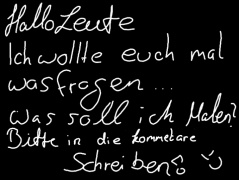 Hallo Leute
Ich wollte euch mal
was fragen...
Was soll ich Malen?
Bitte in die kommetare
Schreiben